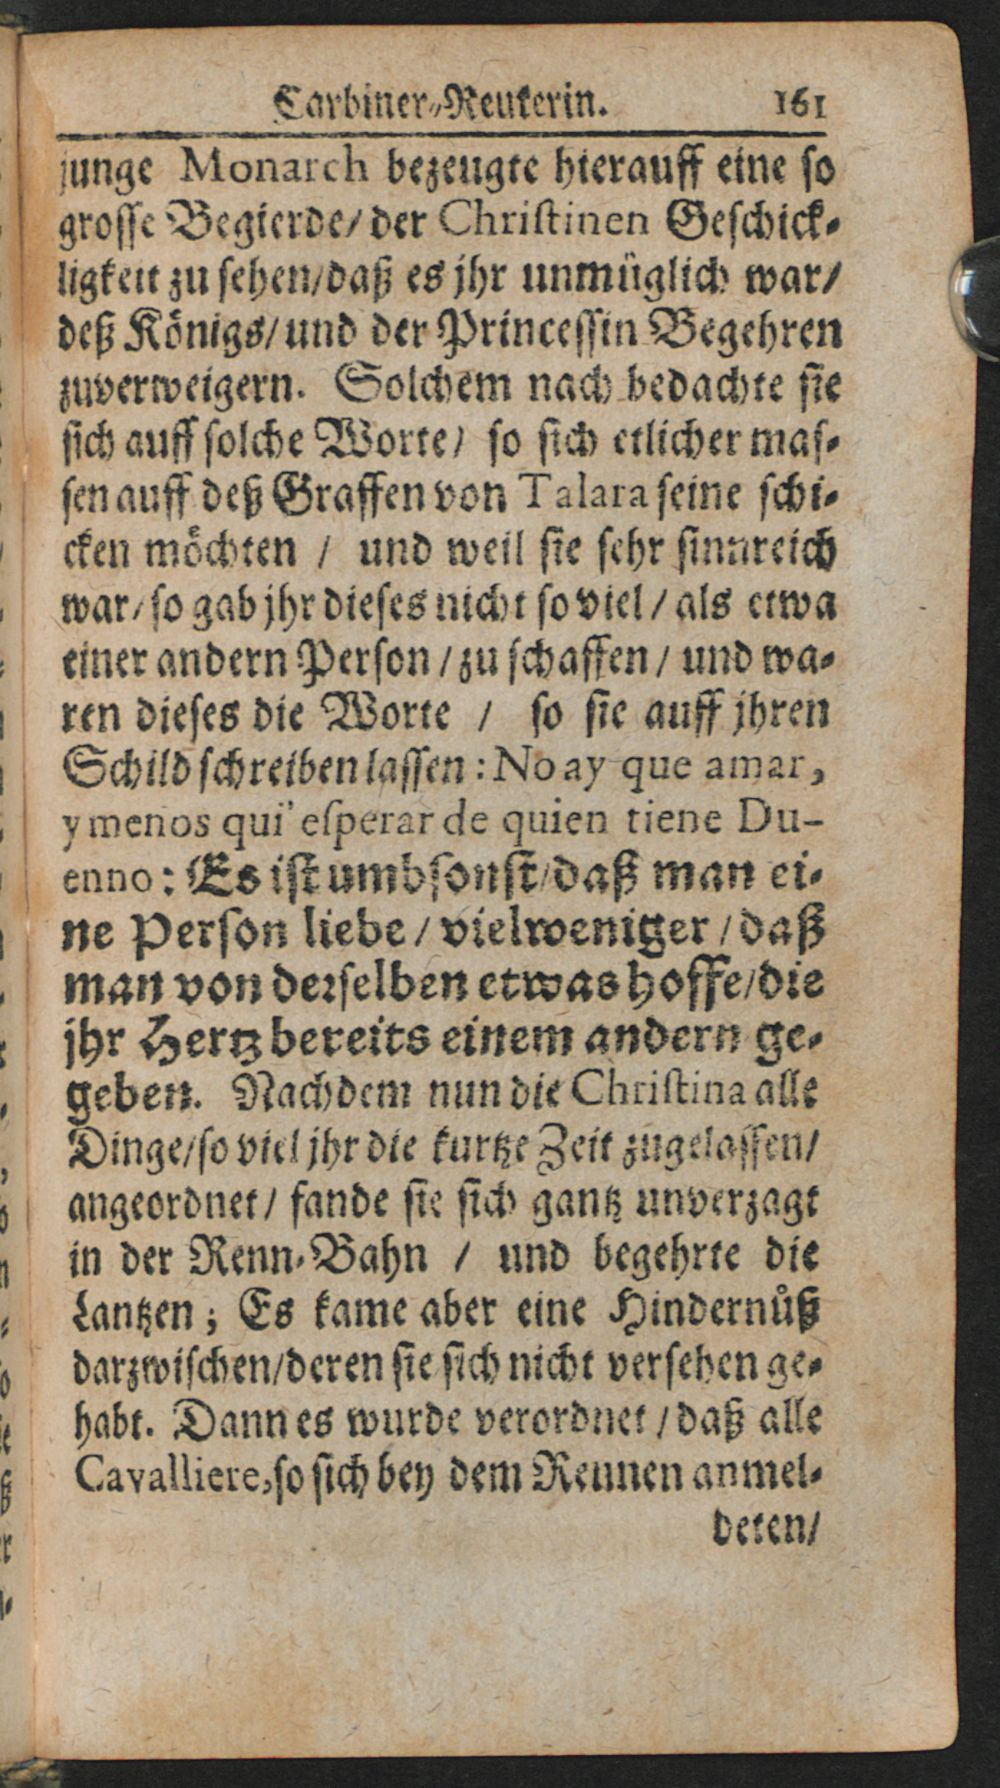 Carbiner-Reuterin. 161
junge Monarch bezeugte hierauff eine so
grosse Begierde/ der Christinen Geschick-
ligkeit zu sehen/ daß es jhr unmüglich war/
deß Königs/ und der Princessin Begehren
zuverweigern. Solchem nach bedachte sie
sich auff solche Worte/ so sich etlicher mas-
sen auff deß Graffen von Talara seine schi-
cken möchten / und weil sie sehr sinnreich
war/ so gab jhr dieses nicht so viel / als etwa
einer andern Person / zu schaffen / und wa-
ren dieses die Worte / so sie auff jhren
Schild schreiben lassen: No ay que amar,
y menos qui' esperar de quien tiene Du-
enno: Es ist umbsonst/ daß man ei-
ne Person liebe / vielweniger / daß
man von derselben etwas hoffe/ die
jhr Hertz bereits einem andern ge-
geben. Nachdem nun die Christina alle
Dinge/ so viel jhr die kurtze Zeit zugelassen/
angeordnet/ fande sie sich gantz unverzagt
in der Renn-Bahn / und begehrte die
Lantzen; Es kame aber eine Hindernůß
darzwischen/ deren sie sich nicht versehen ge-
habt. Dann es wurde verordnet / daß alle
Cavalliere, so sich bey dem Rennen anmel-
deten/